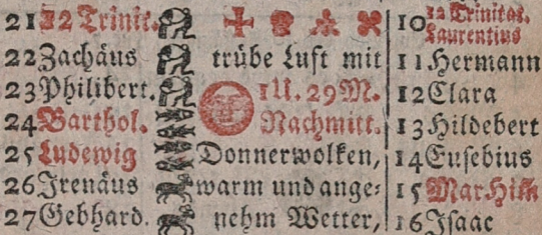 21 12 Trinit.
22 Zachäus trübe Luft mit
23 Philibert. 1 U. 29 M.
24 Barthol. Nachmitt.
25 Ludewig Donnerwolken,
26 Irenäus warm und ange⸗
27 Gebhard. nehm Wetter,
10 12 Trinitat.
Laurentius
11 Hermann
12 Clara
13 Hildebert
14 Eusebius
15 Mar. Him
16 Isaac